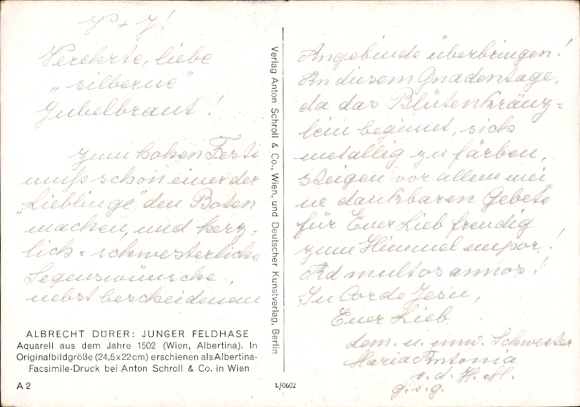 P + J!
Verehrte, liebe
„silberne"
Jubelbraut!
zum hohen Feste
muß schon einer der
"Lieblinge" den Boten
machen, und herz-
lich-schwesterliche
Segenswünsche,
nebst bescheidenem
ALBRECHT DÜRER: JUNGER FELDHASE
Aquarell aus dem Jahre 1502 (Wien, Albertina). In
Originalbildgröße (24,5x22cm) erschienen als Albertina-
Facsimile-Druck bei Anton Schroll & Co. in Wien
A 2
Verlag Anton Schroll & Co., Wien, und Deutscher Kunstverlag, Berlin
L/0602
Angebinde überbringen!
An diesem Gnadentage,
da das Blütenkränz-
lein beginnt, sich
metallig zu färben,
steigen vor allem mei
ne dankbaren Gebete
für Euer Lieb freudig
zum Himmel empor!
Ad multos annos!
In Corde Jesu,
Euer Lieb
dem. u. unw. Schwester
Maria Antonia
v. d. H. M.